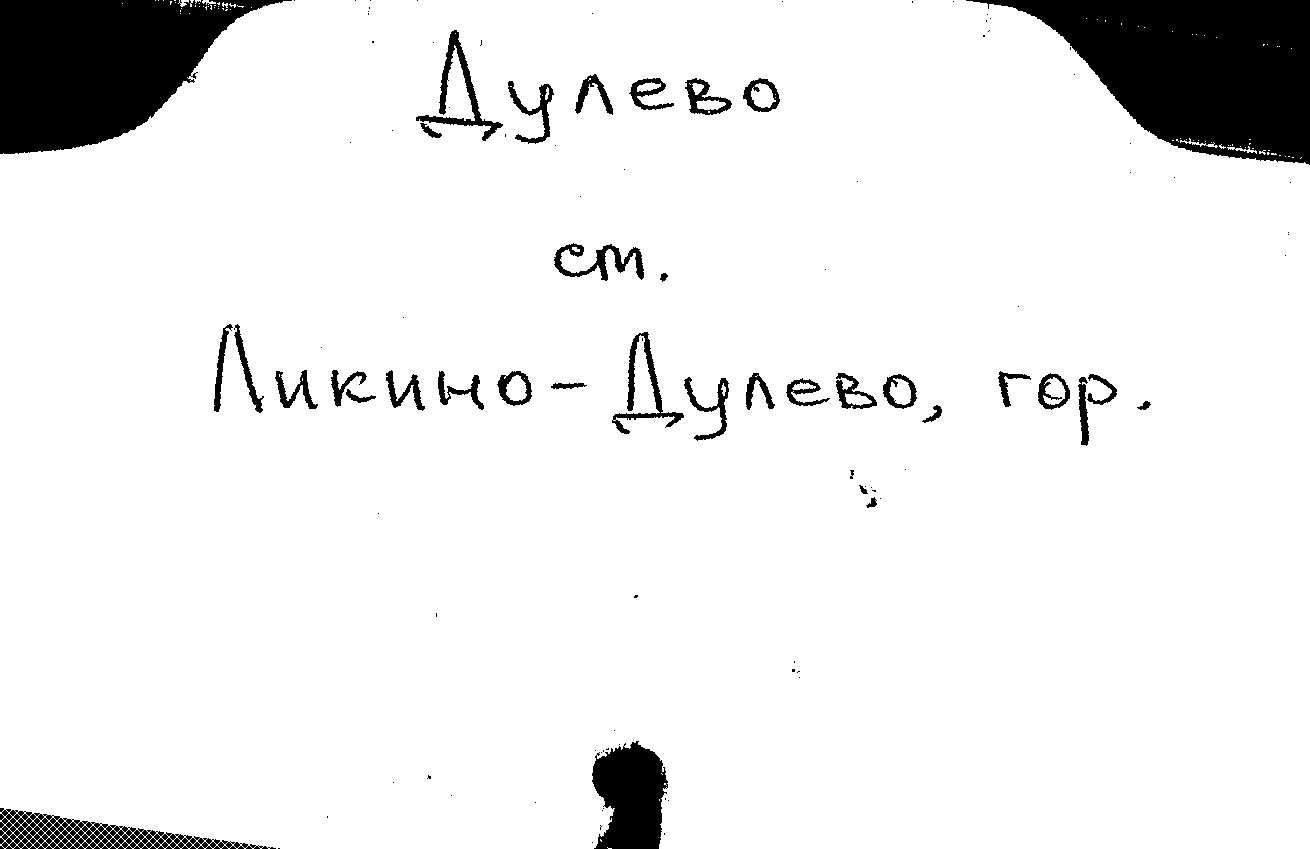 Дулево
ст.
Ликино-Дулево, гор.